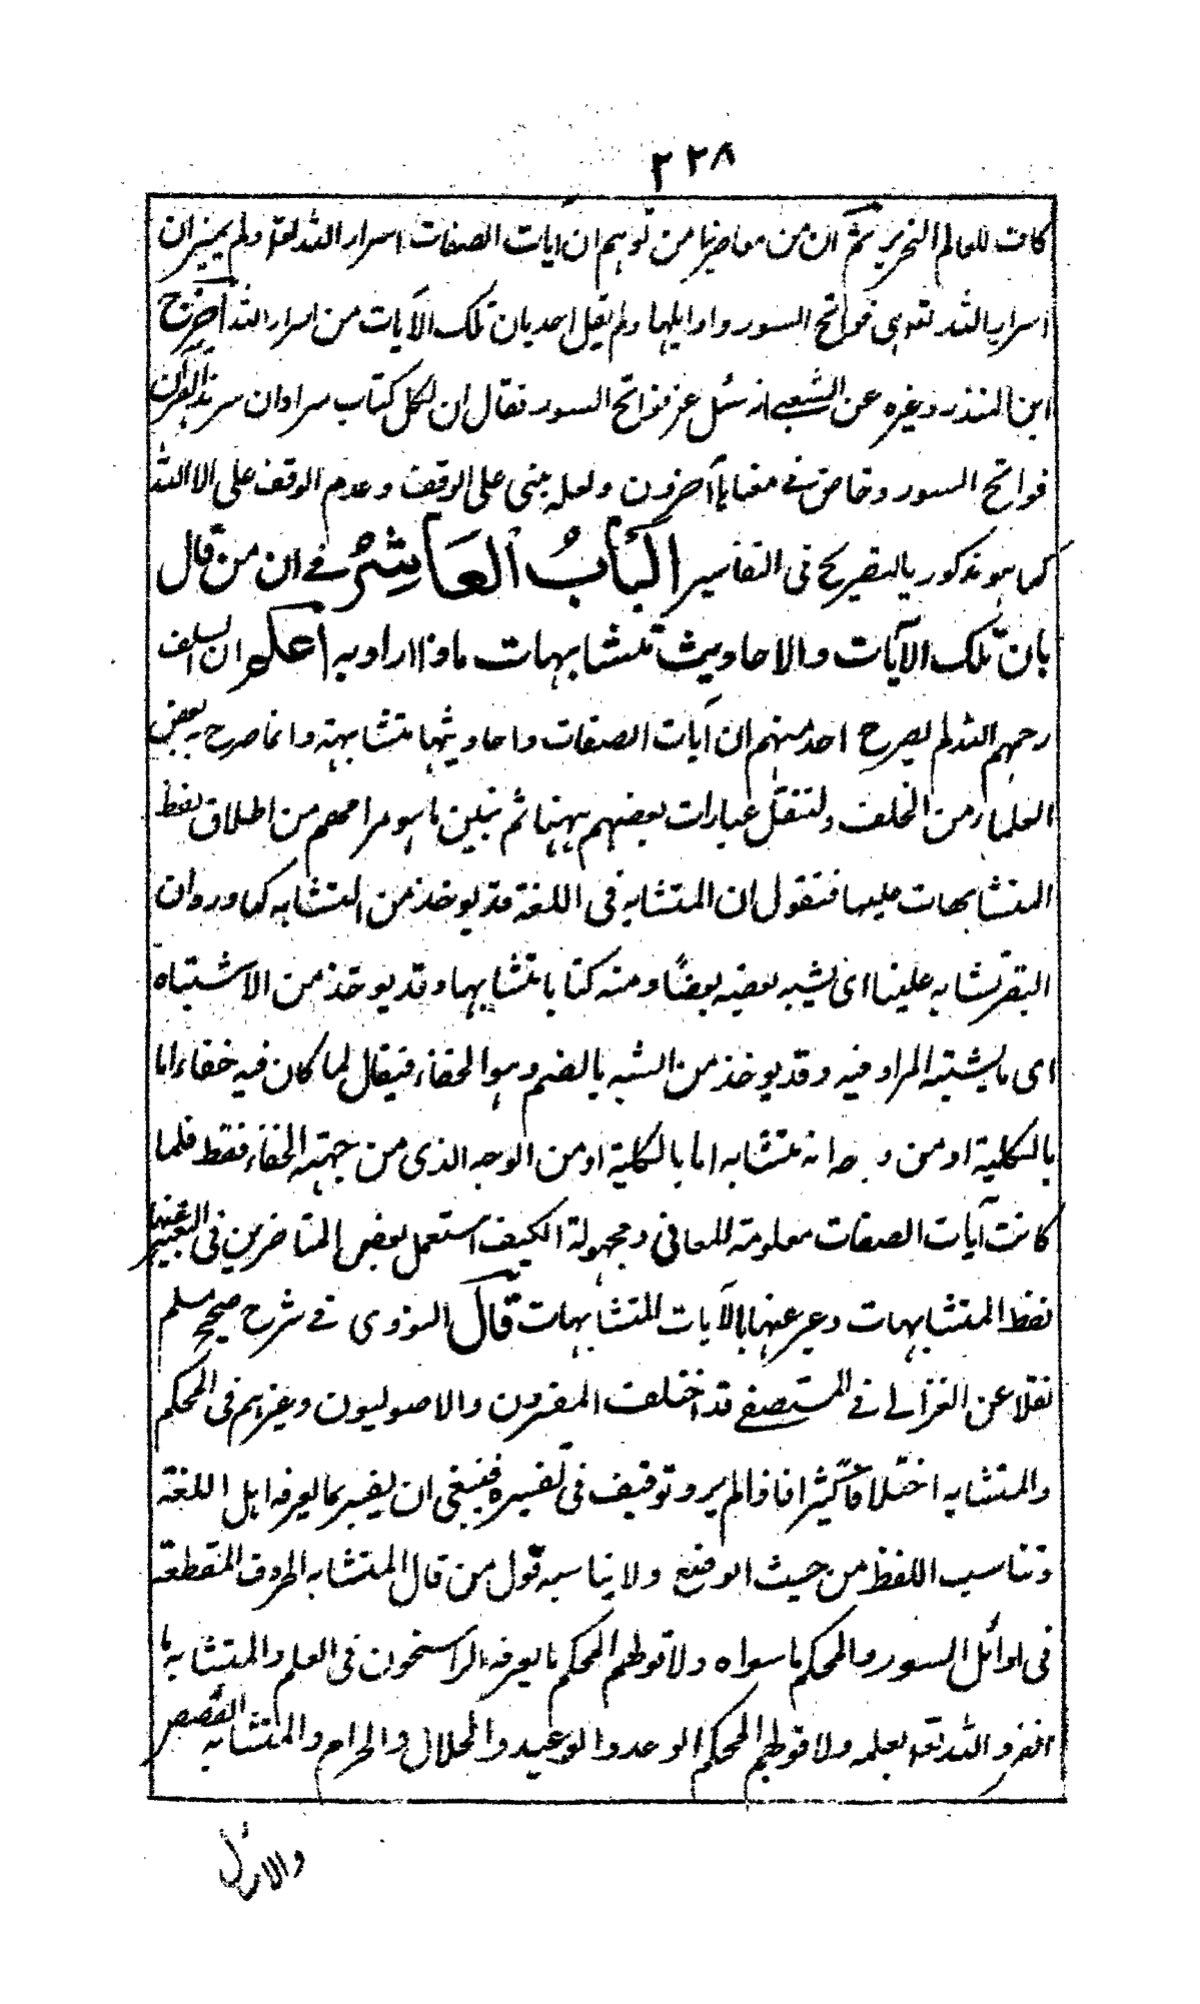 ٢٢٨
كاف للعالم النحرير ثم ان من معاصرينا من توهم ان آيات الصفات اسرار الله تعالى ولم يميز ان
اسرار الله تعالى هى فواتح السور واوايلها ولم يقل احد بان تلك الآيات من اسرار الله اخرج
ابن المنذر وغيره عن الشعبى انه سئل عن فواتح السور فقال ان لكل كتاب سرا وان سر هذا القرآن
فواتح السور وخاض فى معناها آخرون ولعله مبنى على الوقف وعدم الوقف على الا الله
كما هو مذكور بالتصريح فى التفاسير الْبَابُ الْعَاشِرُ فى ان من قال
بان تلك الآيات والاحاديث متشابهات ماذا اراد به اعلم ان السلف
رحمهم الله لم يصرح احد منهم ان آيات الصفات واحاديثها متشابهة وانما صرح به بعض
العلماء من الخلف ولننقل عبارات بعضهم ههنا ثم نبين ما هو مرامهم من اطلاق لفظ
المتشابهات عليها فنقول ان المتشابه فى اللغة قد يوخذ من التشابه كما ورد ان
البقر تشابه علينا اى يشبه بعضه بعضًا ومنه كتابا متشابها وقد يوخذ من الاشتباه
اى ما يشتبه المراد فيه وقد يوخذ من الشبه بالضم وهو الخفاء فيقال لما كان فيه خفاء اما
بالكلية او من وجه انه متشابه اما بالكلية او من الوجه الذى من جهته الخفاء فقط فلما
كانت آيات الصفات معلومة للمعانى ومجهولة الكيف استعمل بعض المتاخرين فى التعبير عنها
لفظ المتشابهات وعبر عنها بالآيات المتشابهات قال النووى فى شرح صحيح مسلم
نقلا عن الغزالى فى المستصفى قد اختلف المفسرون والاصوليون وغيرهم فى المحكم
والمتشابه اختلافا كثيرا فاذا لم يرد توقيف فى تفسيره فينبغى ان يفسر بما يعرفه اهل اللغة
وتناسب اللفظ من حيث الوضع ولا يناسبه قول من قال المتشابه الحروف المقطعة
فى اوائل السور والمحكم ما سواه ولا قولهم المحكم ما يعرفه الراسخون فى العلم والمتشابه ما
انفرد الله تعالى بعلمه ولا قولهم المحكم الوعد والوعيد والحلال والحرام والمتشابه القصص
والامثال